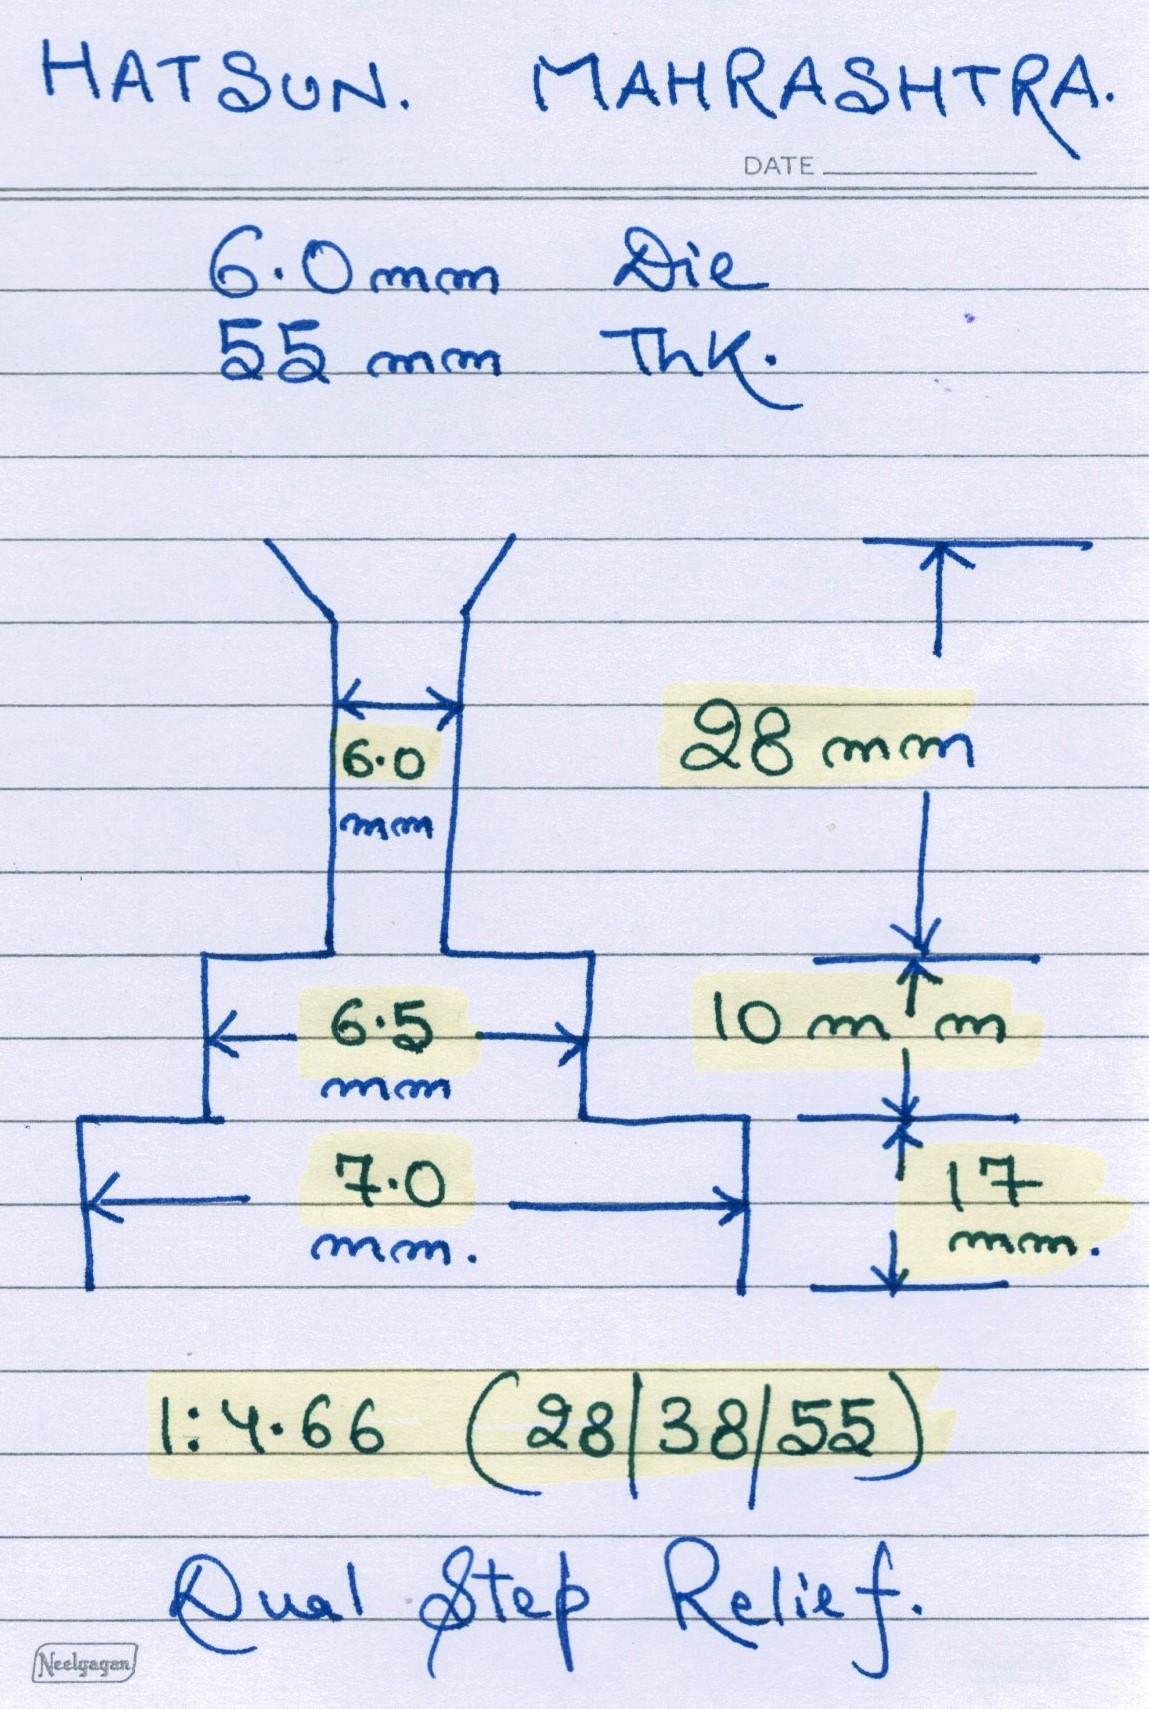 HATSUN. MAHRASHTRA.
DATE
6.0 mm Die
55 mm Thk.
28 mm
6.0
mm
6.5
mm
10 mm
7.0
mm.
17
mm.
1:4.66 (28/38/55)
Dual Step Relief.
Neelgagan